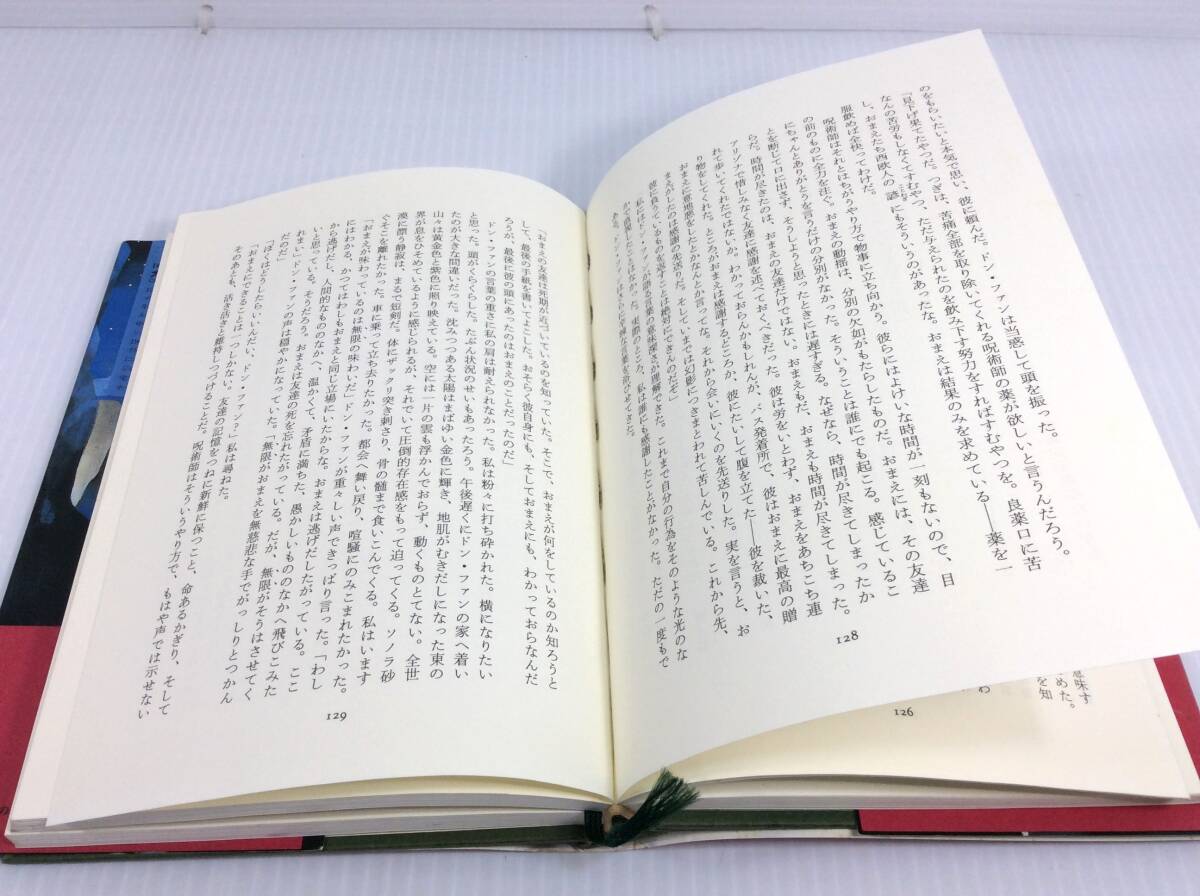 のをもらいたいと本気で思い、彼に頼んだ。ドン・ファンは当惑して頭を振った。
「見下げ果てたやつだ。つぎは、苦痛全部を取り除いてくれる呪術師の薬が欲しいと言うんだろう。
なんの苦労もしなくてすむやつ、ただ与えられたのを飲み下す努力をすればすむやつを。良薬口に苦
し、おまえたち西欧人の諺にもそういうのがあったな。おまえは結果のみを求めている――薬を一
服飲めば全快ってわけだ。
呪術師はそれとはちがうやり方で物事に立ち向かう。彼らにはよけいな時間が一刻もないので、目
の前のものに全力を注ぐ。おまえの動揺は、分別の欠如がもたらしたものだ。おまえには、その友達
にちゃんとありがとうを言うだけの分別がなかった。そういうことは誰にでも起こる。感じているこ
とを断じて口に出さず、そうしようと思ったときには遅すぎる。なぜなら、時間が尽きてしまったか
らだ。時間が尽きたのは、おまえの友達だけではない。おまえもだ、おまえも時間が尽きてしまった。
アリゾナで惜しみなく友達に感謝を述べておくべきだった。彼は労をいとわず、おまえをあちこち連
れて歩いてくれたではないか。わかっておらんかもしれんが、バス発着所で、彼はおまえに最高の贈
り物をしてくれた。ところがおまえは感謝するどころか、彼にたいして腹を立てた――彼を裁いた、
おまえに意地悪をしたとかなんとか言ってな。それから会いにいくのを先送りした。実を言うと、お
まえがしたのは感謝の先送りだ。そしていまは幻影につきまとわれて苦しんでいる。これから先、
彼に負うているものを返すことは絶対にできんのだぞ」
私にはドン・ファンが語る言葉の意味深さが理解できた。これまで自分の行為をそのような光のな
かで展開したことはなかった。実際のところ、私は誰にも感謝したことがなかった。ただの一度もで
128
意味す
めた。
を知
わ
126
「おまえの友達は死期が近づいているのを知っていた。そこで、おまえが何をしているのか知ろうと
して、最後の手紙を書いてよこした。おそらく彼自身にも、そしておまえにも、わかっておらなんだ
ろうが、最後に彼の頭にあったのはおまえのことだったのだ」
ドン・ファンの言葉の重さに私の肩は耐えられなかった。私は粉々に打ち砕かれた。横になりたい
と思った。頭がくらくらした。たぶん状況のせいもあったろう。午後遅くにドン・ファンの家へ着い
たのが大きな間違いだった。沈みつつある太陽はまばゆい金色に輝き、地肌がむきだしになった東の
山々は黄金色と紫色に照り映えている。空には一片の雲も浮かんでおらず、動くものとてない。全世
界が息をひそめているように感じられるが、それでいて圧倒的存在感をもって迫ってくる。ソノラ砂
漠に漂う静寂は、まるで短剣だ。体にグサッと突き刺さり、骨の髄まで食いこんでくる。私はいます
ぐそこを離れたかった。車に乗って立ち去りたかった。都会へ舞い戻り、喧騒にのみこまれたかった。
「おまえが味わっているのは無限の味わいだ」ドン・ファンが重々しい声できっぱり言った。「わし
にはわかる、かつてはわしもおまえと同じ立場にいたからな。おまえは逃げだしたがっている。ここ
から逃げだし、人間的なもののなかへ、温かくて、矛盾に満ちた、愚かしいもののなかへ飛びこみた
いと思っている。そうだろう。おまえは友達の死を忘れたがっている。だが、無限がそうはさせてく
れまい」ドン・ファンの声は穏やかになっていた。「無限がおまえを無慈悲な手でがっしりとつかん
だのだ」
「ぼくはどうしたらいいんだい、ドン・ファン？」私は尋ねた。
「おまえにできることは一つしかない。友達の記憶をつねに新鮮に保つこと、命あるかぎり、そして
そのあとも、活き活きと維持しつづけることだ。呪術師はそういうやり方で、もはや声では示せない
129